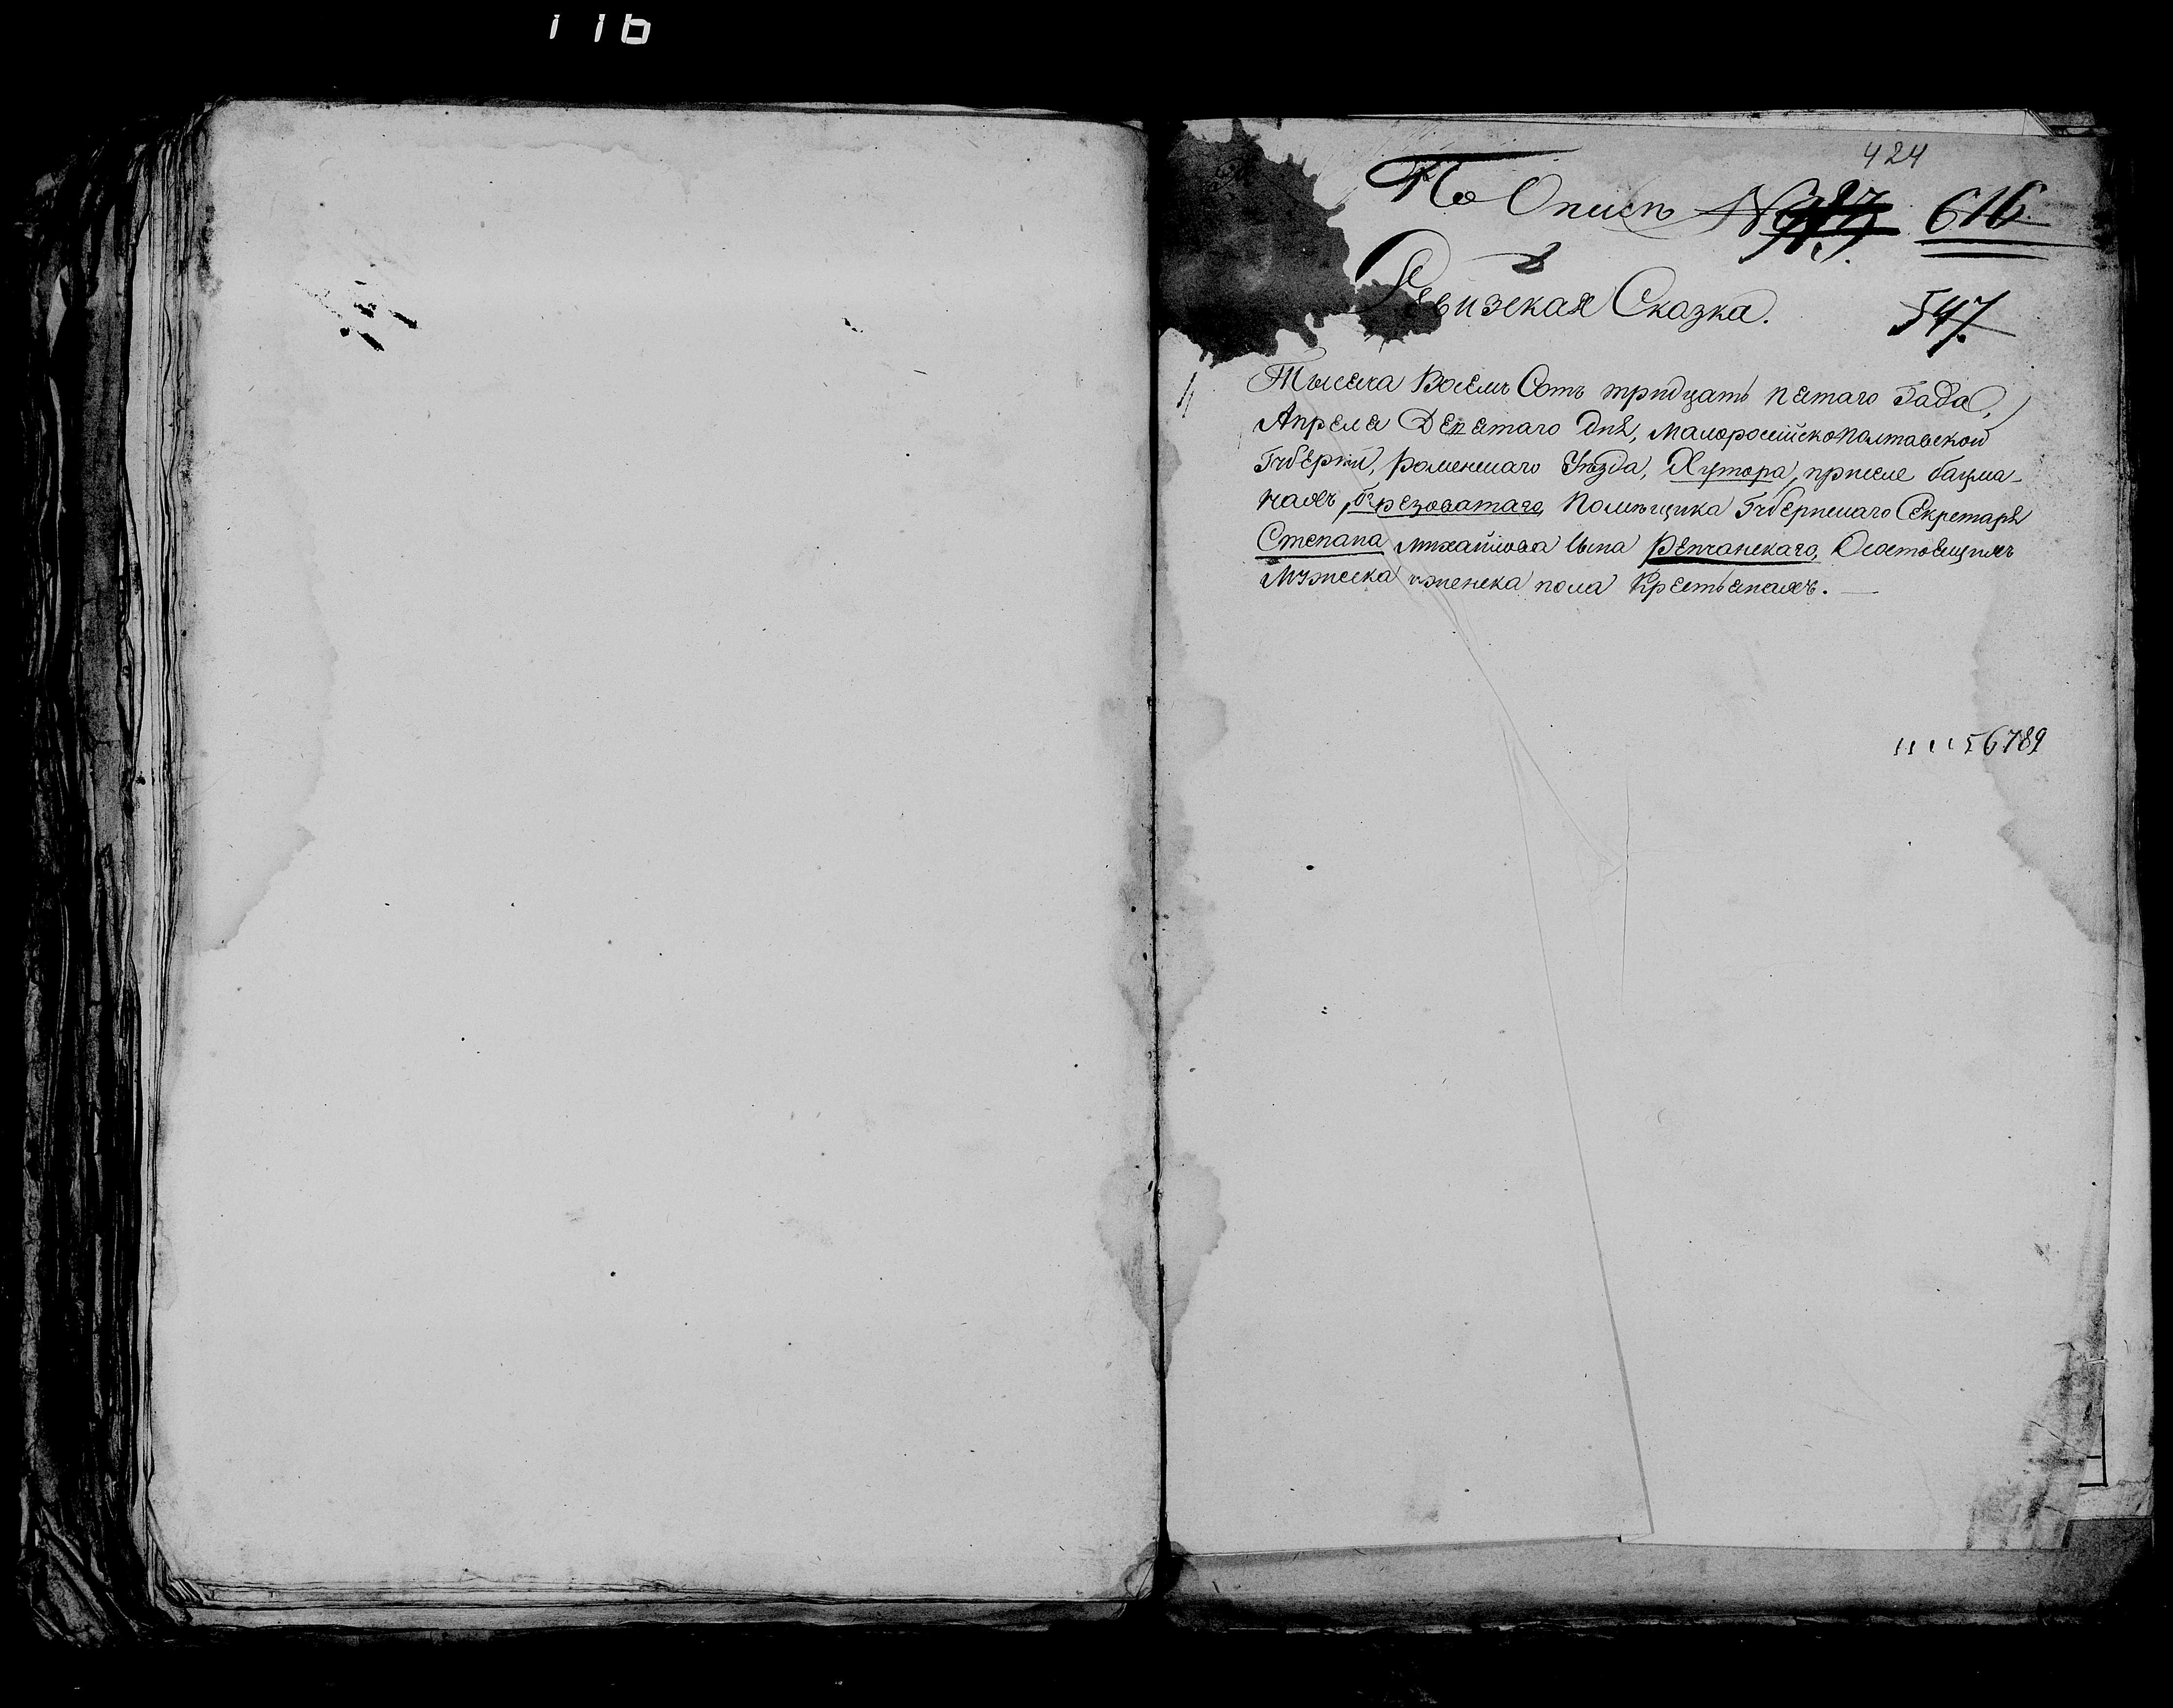 116
424
По Описи № 616
Ревизская Сказка. 547.
Тысеча Восемь Сотъ тридцать пятаго Года,
Апреля Девятаго дня, Малоросийскополтавской
Губернии, Роменшаго Уезда, Хутора, приселе бацма-
чахъ, березоватаго, Помещика Губерншаго Секретаря
Степана Михайлова сына Репчанскаго, Осостоящихъ
Мужеска иженска пола Крестьянахъ.
56789